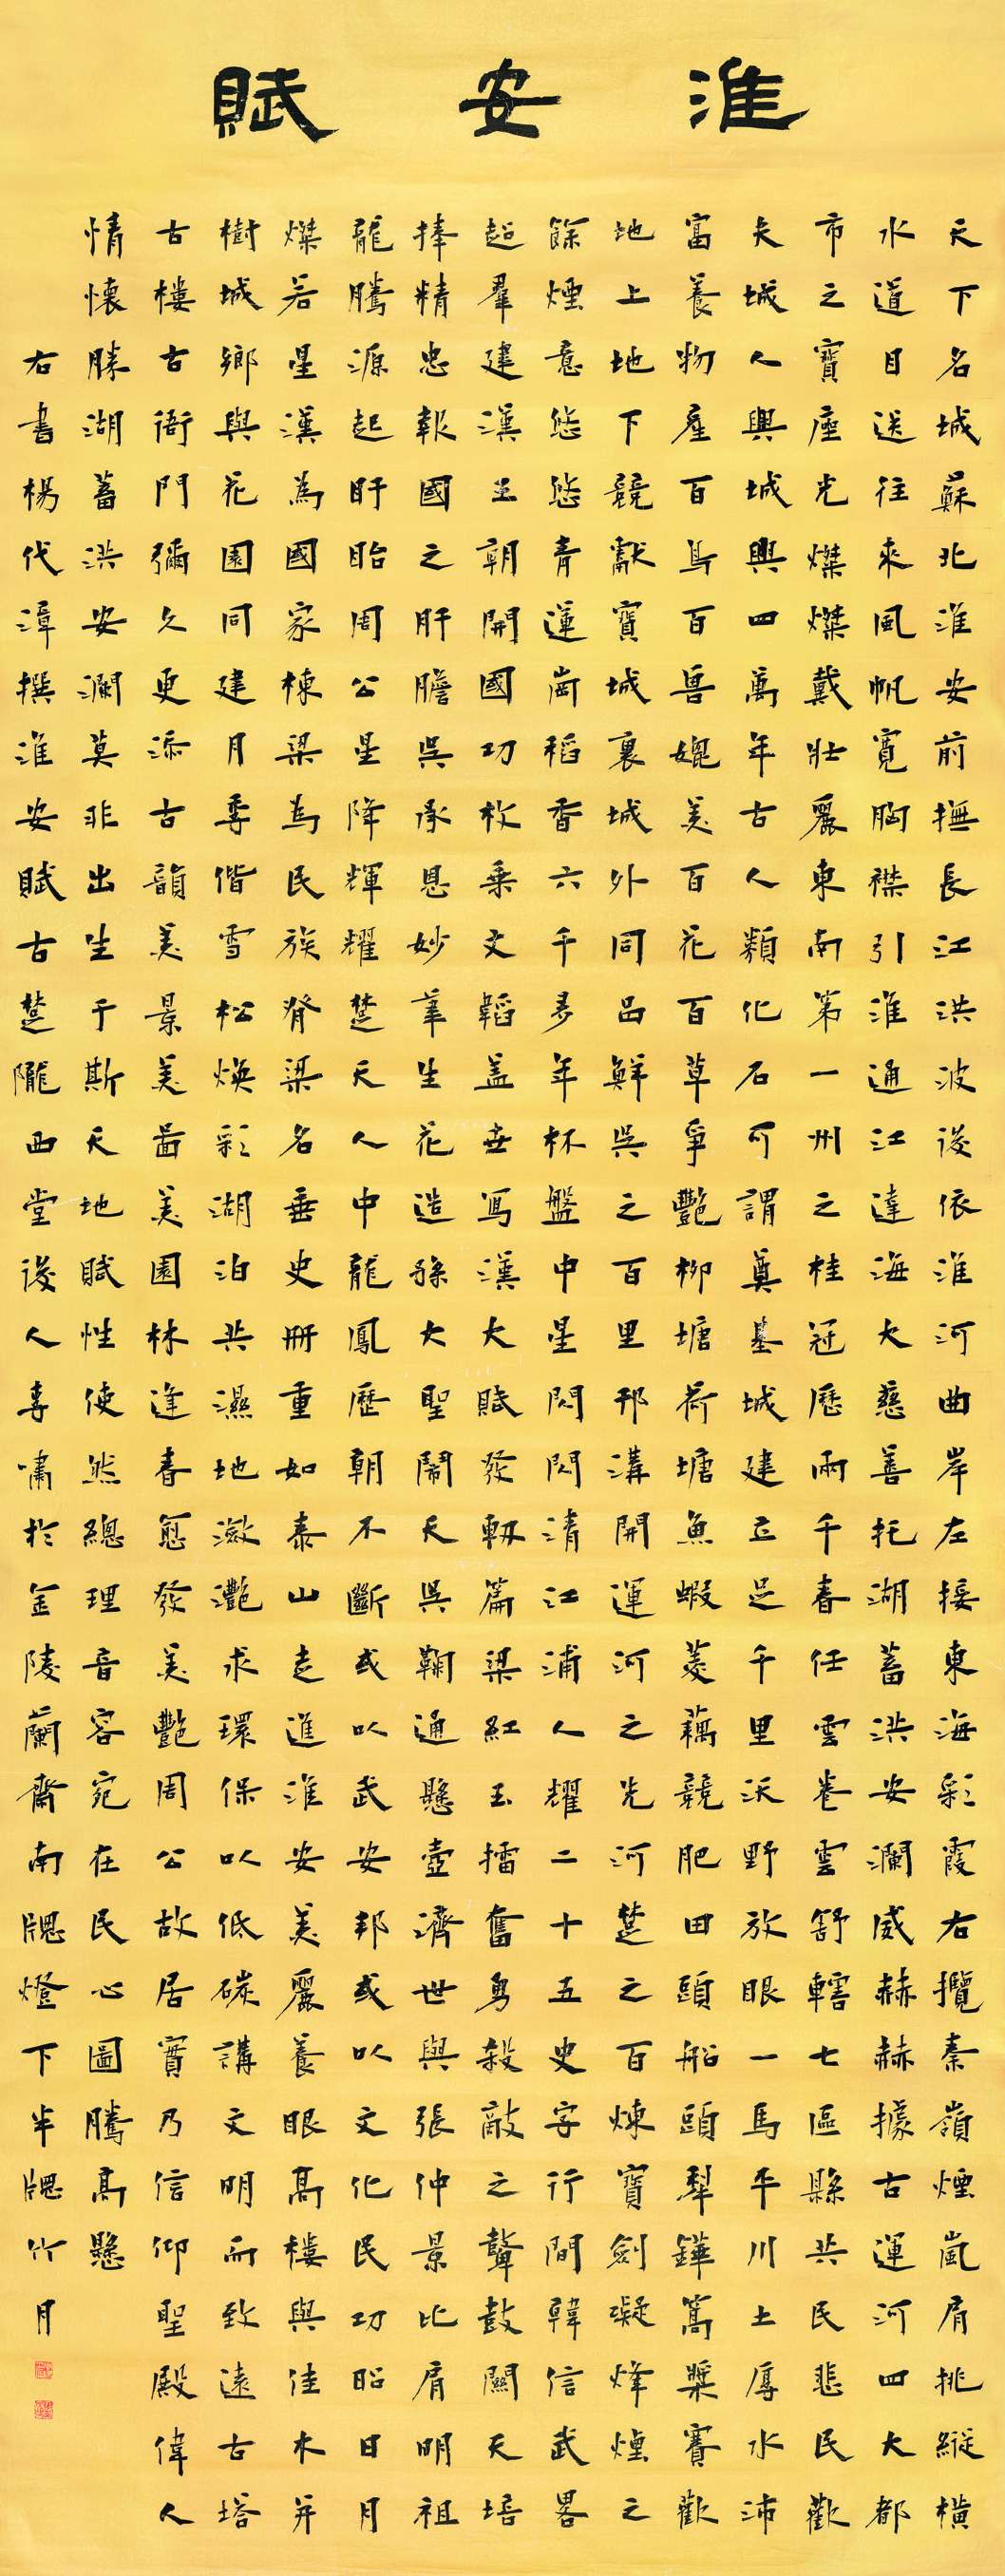 淮安賦
天下名城蘇北淮安前撫長江洪波後依淮河曲岸左接東海彩霞右攬秦嶺煙嵐肩挑縱橫
水道目送往來風帆寬胸襟引淮通江達海大慈善托湖蓄洪安瀾威赫赫據古運河四大都
市之寶座光燦燦戴壯麗東南第一州之桂冠歷兩千春任雲卷雲舒轄七區縣共民悲民歡
夫城人興城興四萬年古人類化石可謂奠基城建立足千里沃野放眼一馬平川土厚水沛
富養物產百鳥百兽媲美百花百草爭艷柳塘荷塘魚蝦菱藕競肥田頭船頭犁鏵篙槳賽歡
地上地下競獻寶城裏城外同品鮮吳之百里邗溝開運河之先河楚之百煉寶劍凝烽煙之
餘煙意態態青蓮崗稻香六千多年杯盤中星閃閃清江浦人耀二十五史字行間韓信武畧
超羣建漢王朝開國功枚乘文韜蓋世寫漢大賦發軔篇梁紅玉擂奮勇殺敵之鼙鼓關天培
捧精忠報國之肝膽吳承恩妙筆生花造孫大聖鬧天吳鞠通懸壺濟世與張仲景比肩明祖
龍騰源起盱眙周公星降輝耀楚天人中龍鳳歷朝不斷或以武安邦或以文化民功昭日月
燦若星漢為國家棟梁為民族脊梁名垂史冊重如泰山走進淮安美麗養眼高樓與佳木并
樹城鄉與花園同建月季偕雪松煥彩湖泊共濕地瀲灩求環保以低碳講文明而致遠古塔
古樓古衙門彌久更添古韻美景美圖美園林逢春愈發美艷周公故居實乃信仰聖殿偉人
情懷勝湖蓄洪安瀾莫非出生于斯天地賦性使然總理音容宛在民心圖騰高懸
右書楊代漳撰淮安賦古楚隴西堂後人專嘯於金陵蘭齋南牕燈下半牕竹月